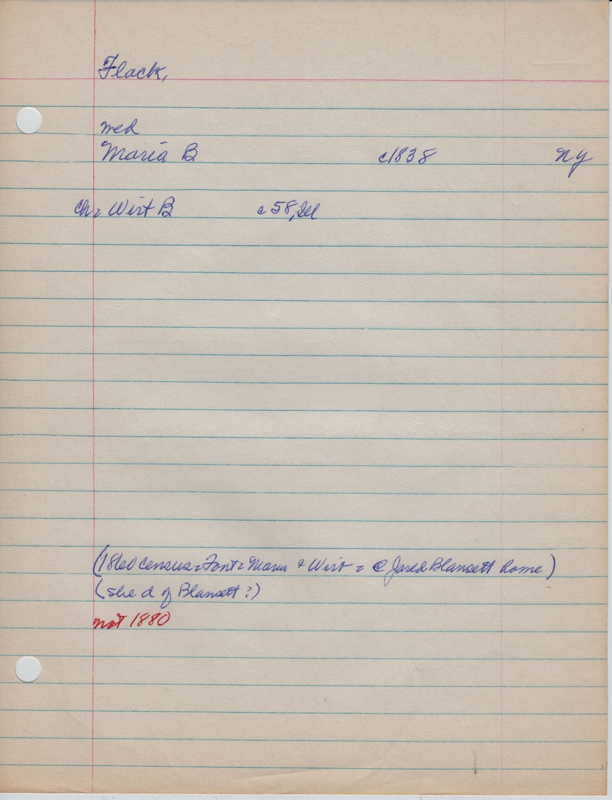 Flack,
med
Maria B c1838 NY
ch = Wirt B c 58, Ill
(1860 Census = Font = Maria & Wirt = @ Jared Blansett home)
(she d of Blansett?)
not 1880